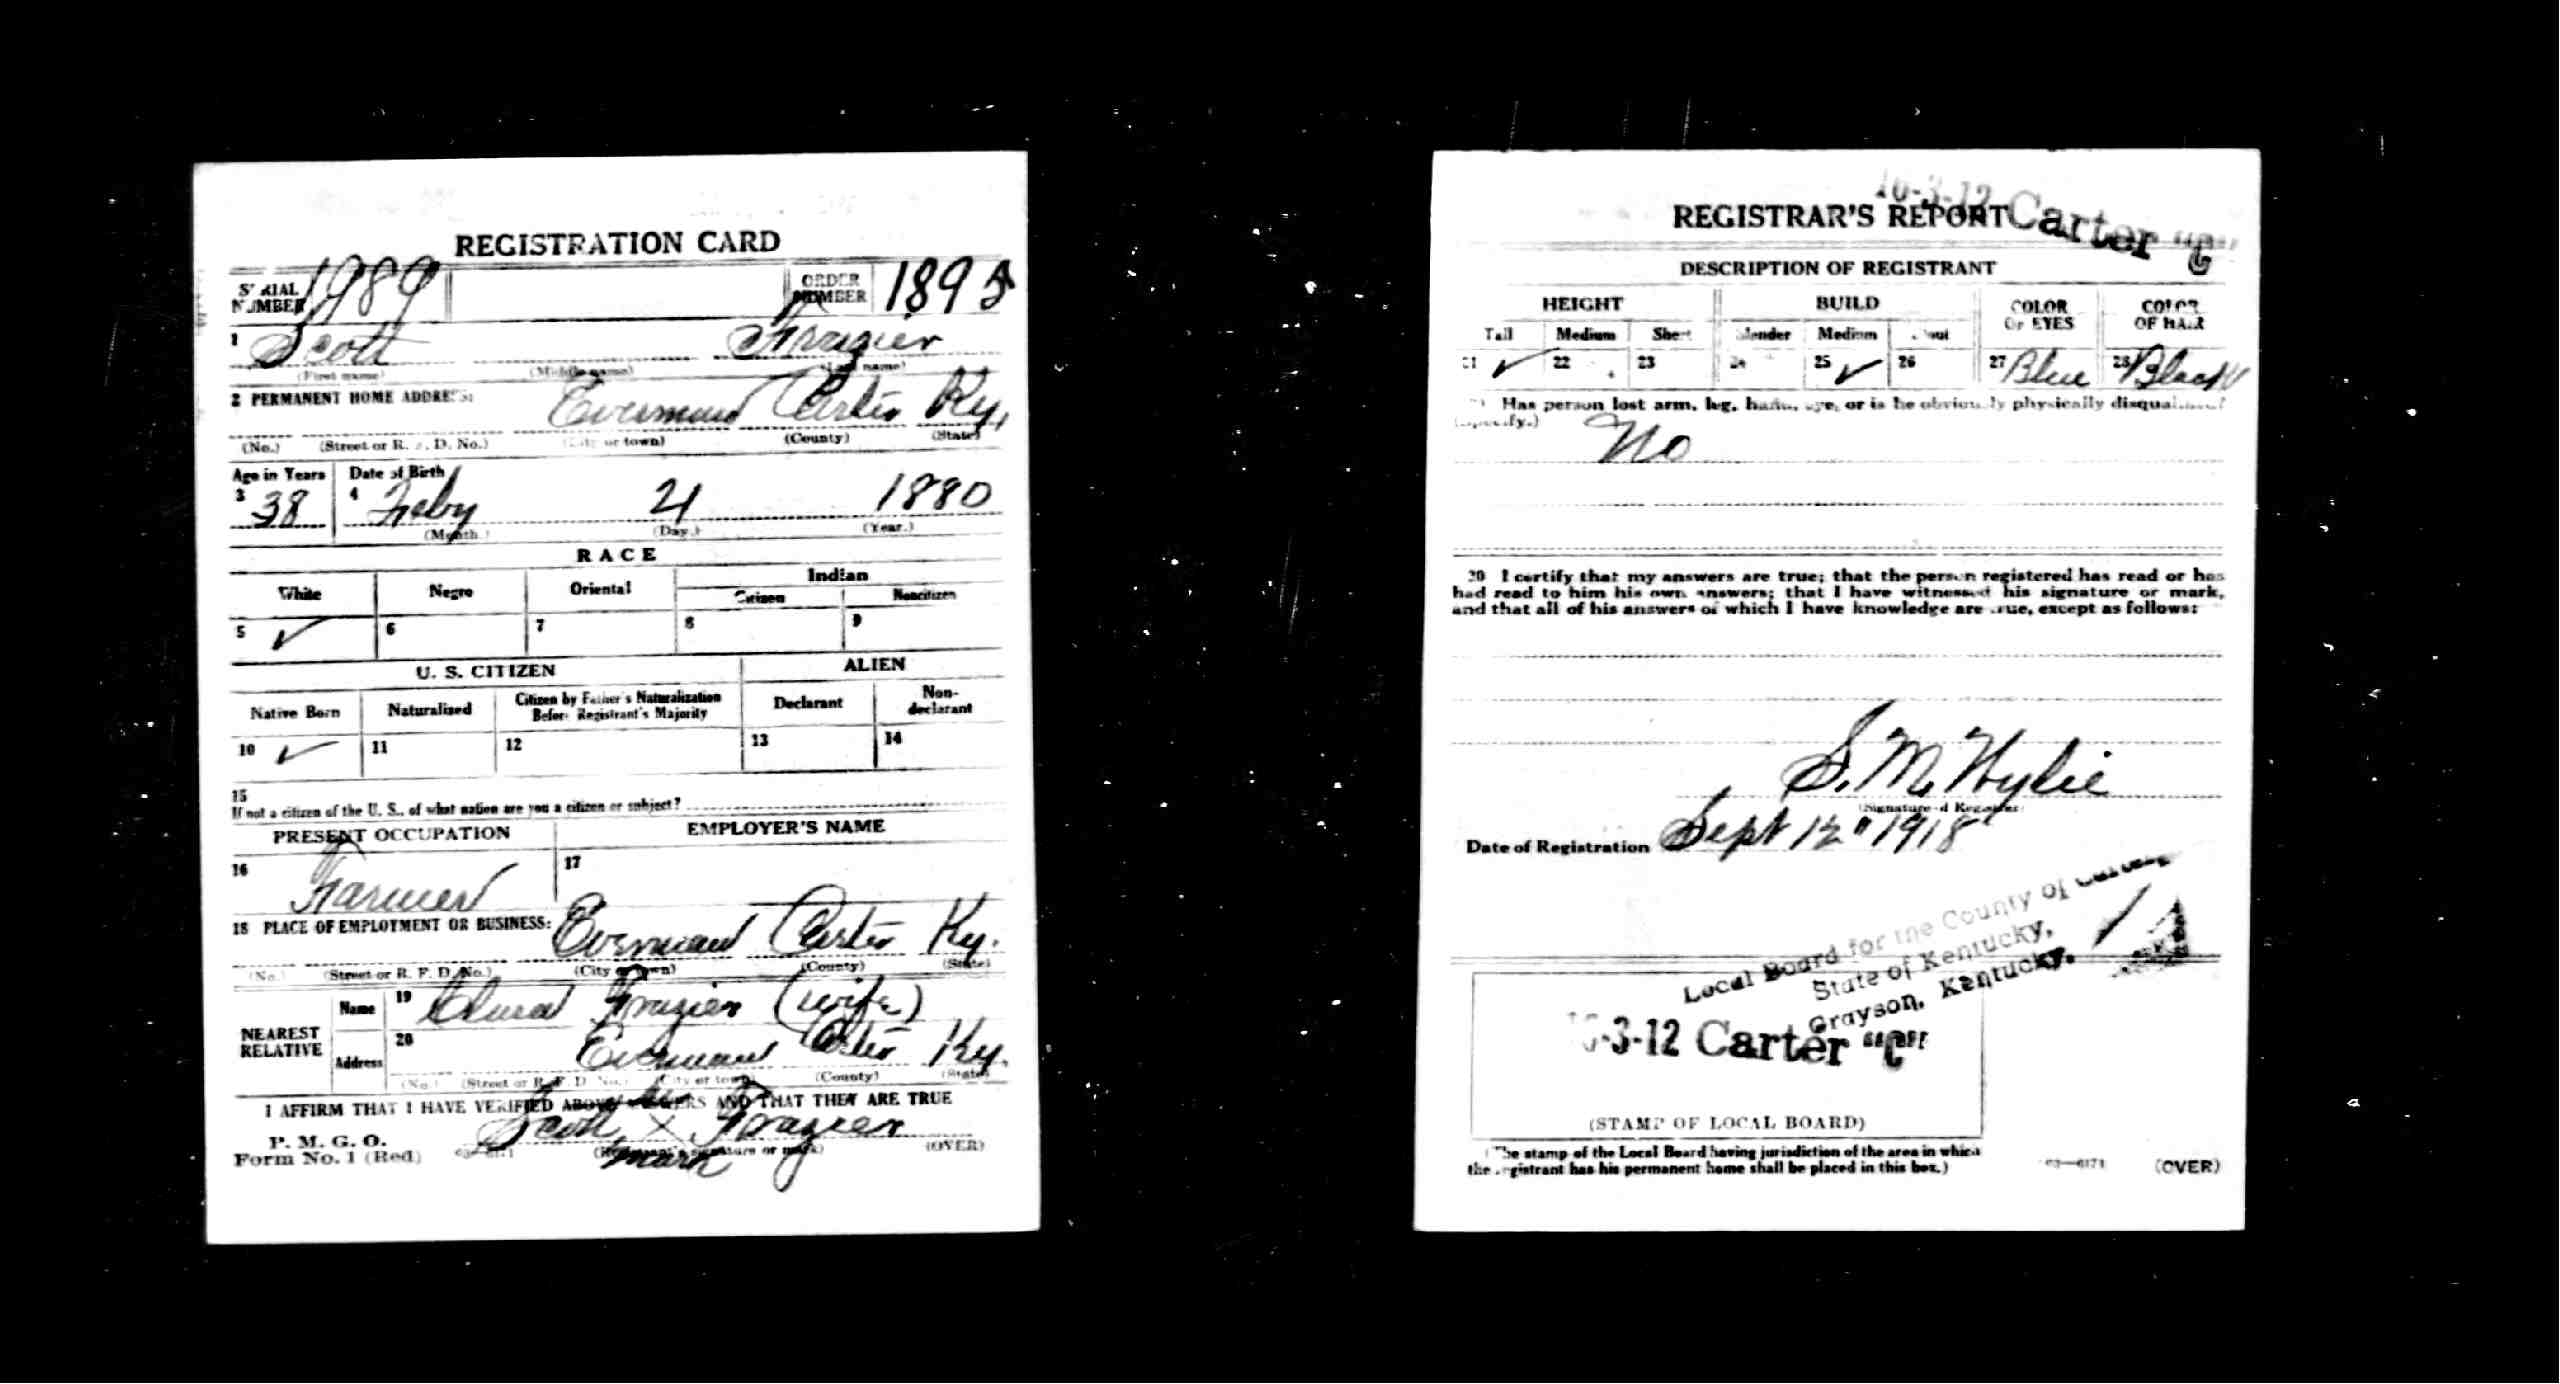 REGISTRATION CARD
SERIAL NUMBER 1989 ORDER NUMBER 1895
1 Scott Frazier
(First name) (Middle name) (Last name)
2 PERMANENT HOME ADDRESS: Everman Carter Ky.
(No.) (Street or R. F. D. No.) (City or town) (County) (State)
Age in Years Date of Birth
3 38 4 Feby 21 1880
(Month.) (Day.) (Year.)
RACE
White Negro Oriental Indian
Citizen Noncitizen
5 ✓ 6 7 8 9
U. S. CITIZEN ALIEN
Native Born Naturalized Citizen by Father's Naturalization Before Registrant's Majority Declarant Non-declarant
10 ✓ 11 12 13 14
15
If not a citizen of the U. S., of what nation are you a citizen or subject?
PRESENT OCCUPATION EMPLOYER'S NAME
16 Farmer 17
18 PLACE OF EMPLOYMENT OR BUSINESS: Everman Carter Ky.
(No.) (Street or R. F. D. No.) (City or town) (County) (State)
NEAREST RELATIVE
Name 19 Frazier (wife)
Address 20 Everman Carter Ky.
(No.) (Street or R. F. D. No.) (City or town) (County) (State)
I AFFIRM THAT I HAVE VERIFIED ABOVE ANSWERS AND THAT THEY ARE TRUE
P. M. G. O.
Form No. 1 (Red) Scott X Frazier
(Registrant's signature or mark) (OVER)
mark
10-3-12 Carter "C"
REGISTRAR'S REPORT
DESCRIPTION OF REGISTRANT
HEIGHT BUILD COLOR OF EYES COLOR OF HAIR
Tall Medium Short Slender Medium Stout
21 ✓ 22 23 24 25 ✓ 26 27 Blue 28 Black
29 Has person lost arm, leg, hand, eye, or is he obviously physically disqualified?
(Specify.) No
30 I certify that my answers are true; that the person registered has read or has
had read to him his own answers; that I have witnessed his signature or mark,
and that all of his answers of which I have knowledge are true, except as follows:
S. M. Wylie
(Signature of Registrar)
Date of Registration Sept 12" 1918
Local Board for the County of Carter,
State of Kentucky,
Grayson, Kentucky.
10-3-12 Carter "C"
(STAMP OF LOCAL BOARD)
(The stamp of the Local Board having jurisdiction of the area in which
the registrant has his permanent home shall be placed in this box.)
03—6171 (OVER)